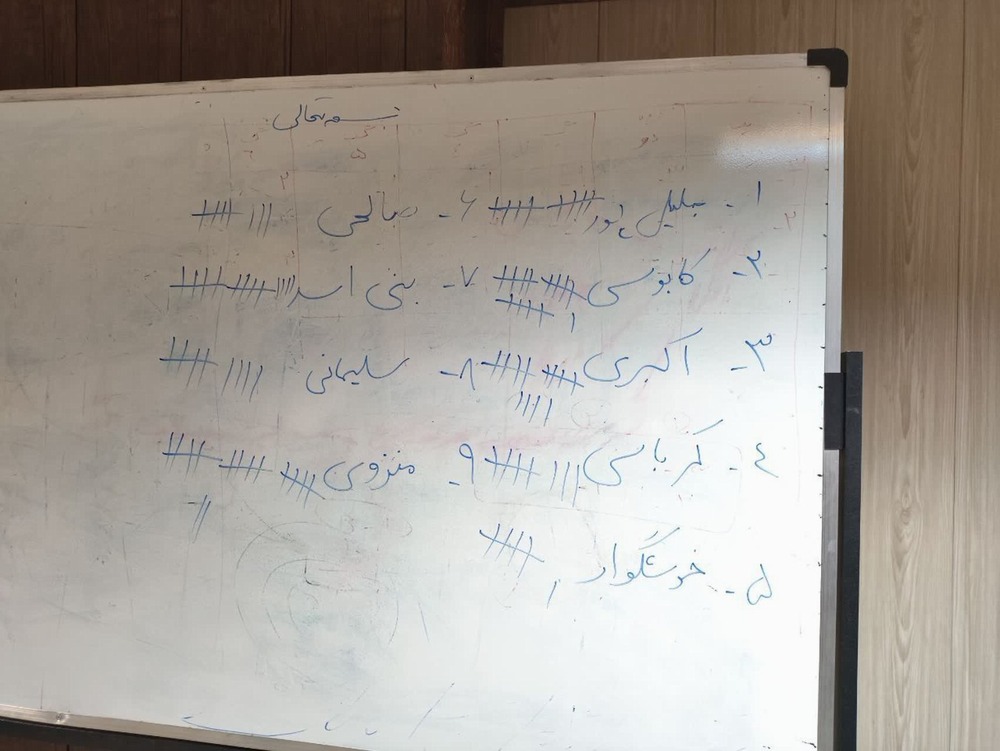 بسمه تعالی
۱- جلیل پور ۶- صالحی
۲- کابوسی ۷- بنی اسد
۳- اکبری ۸- سلیمانی
٤- کرباسی ۹- منزوی
۵- خوشگوار